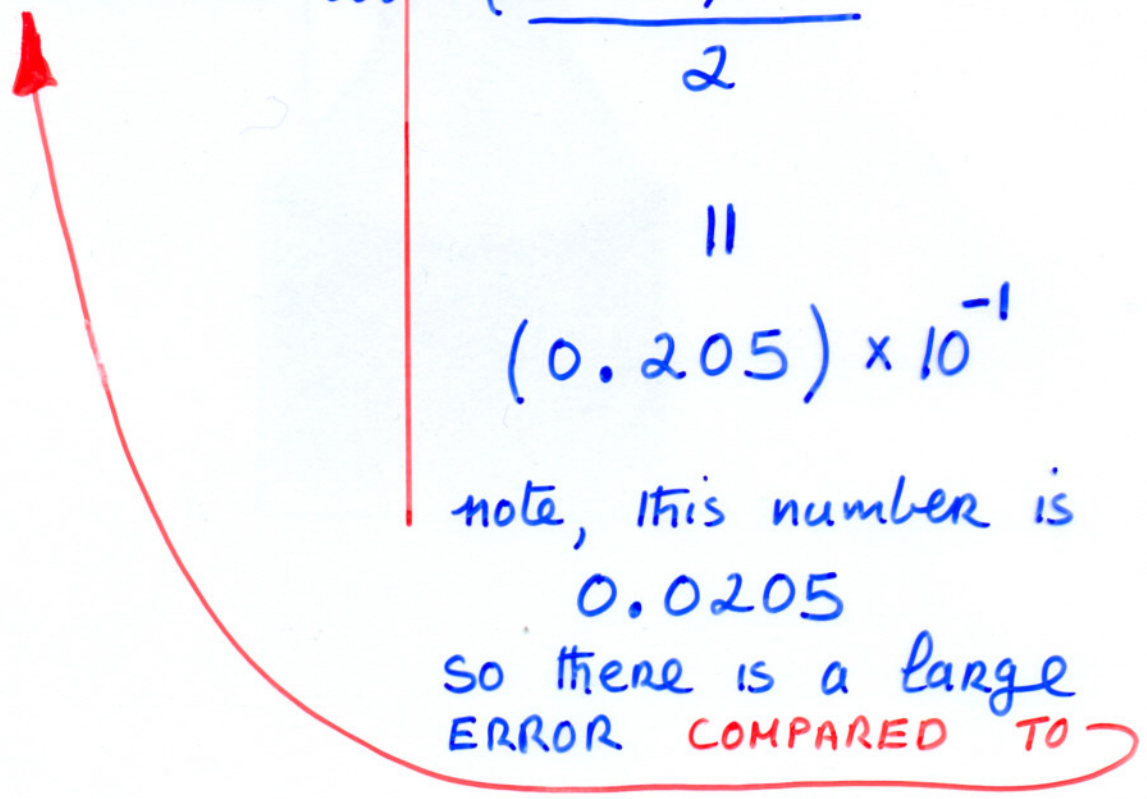 2
=
(0.205) × 10⁻¹
note, this number is
0.0205
so there is a large
ERROR COMPARED TO